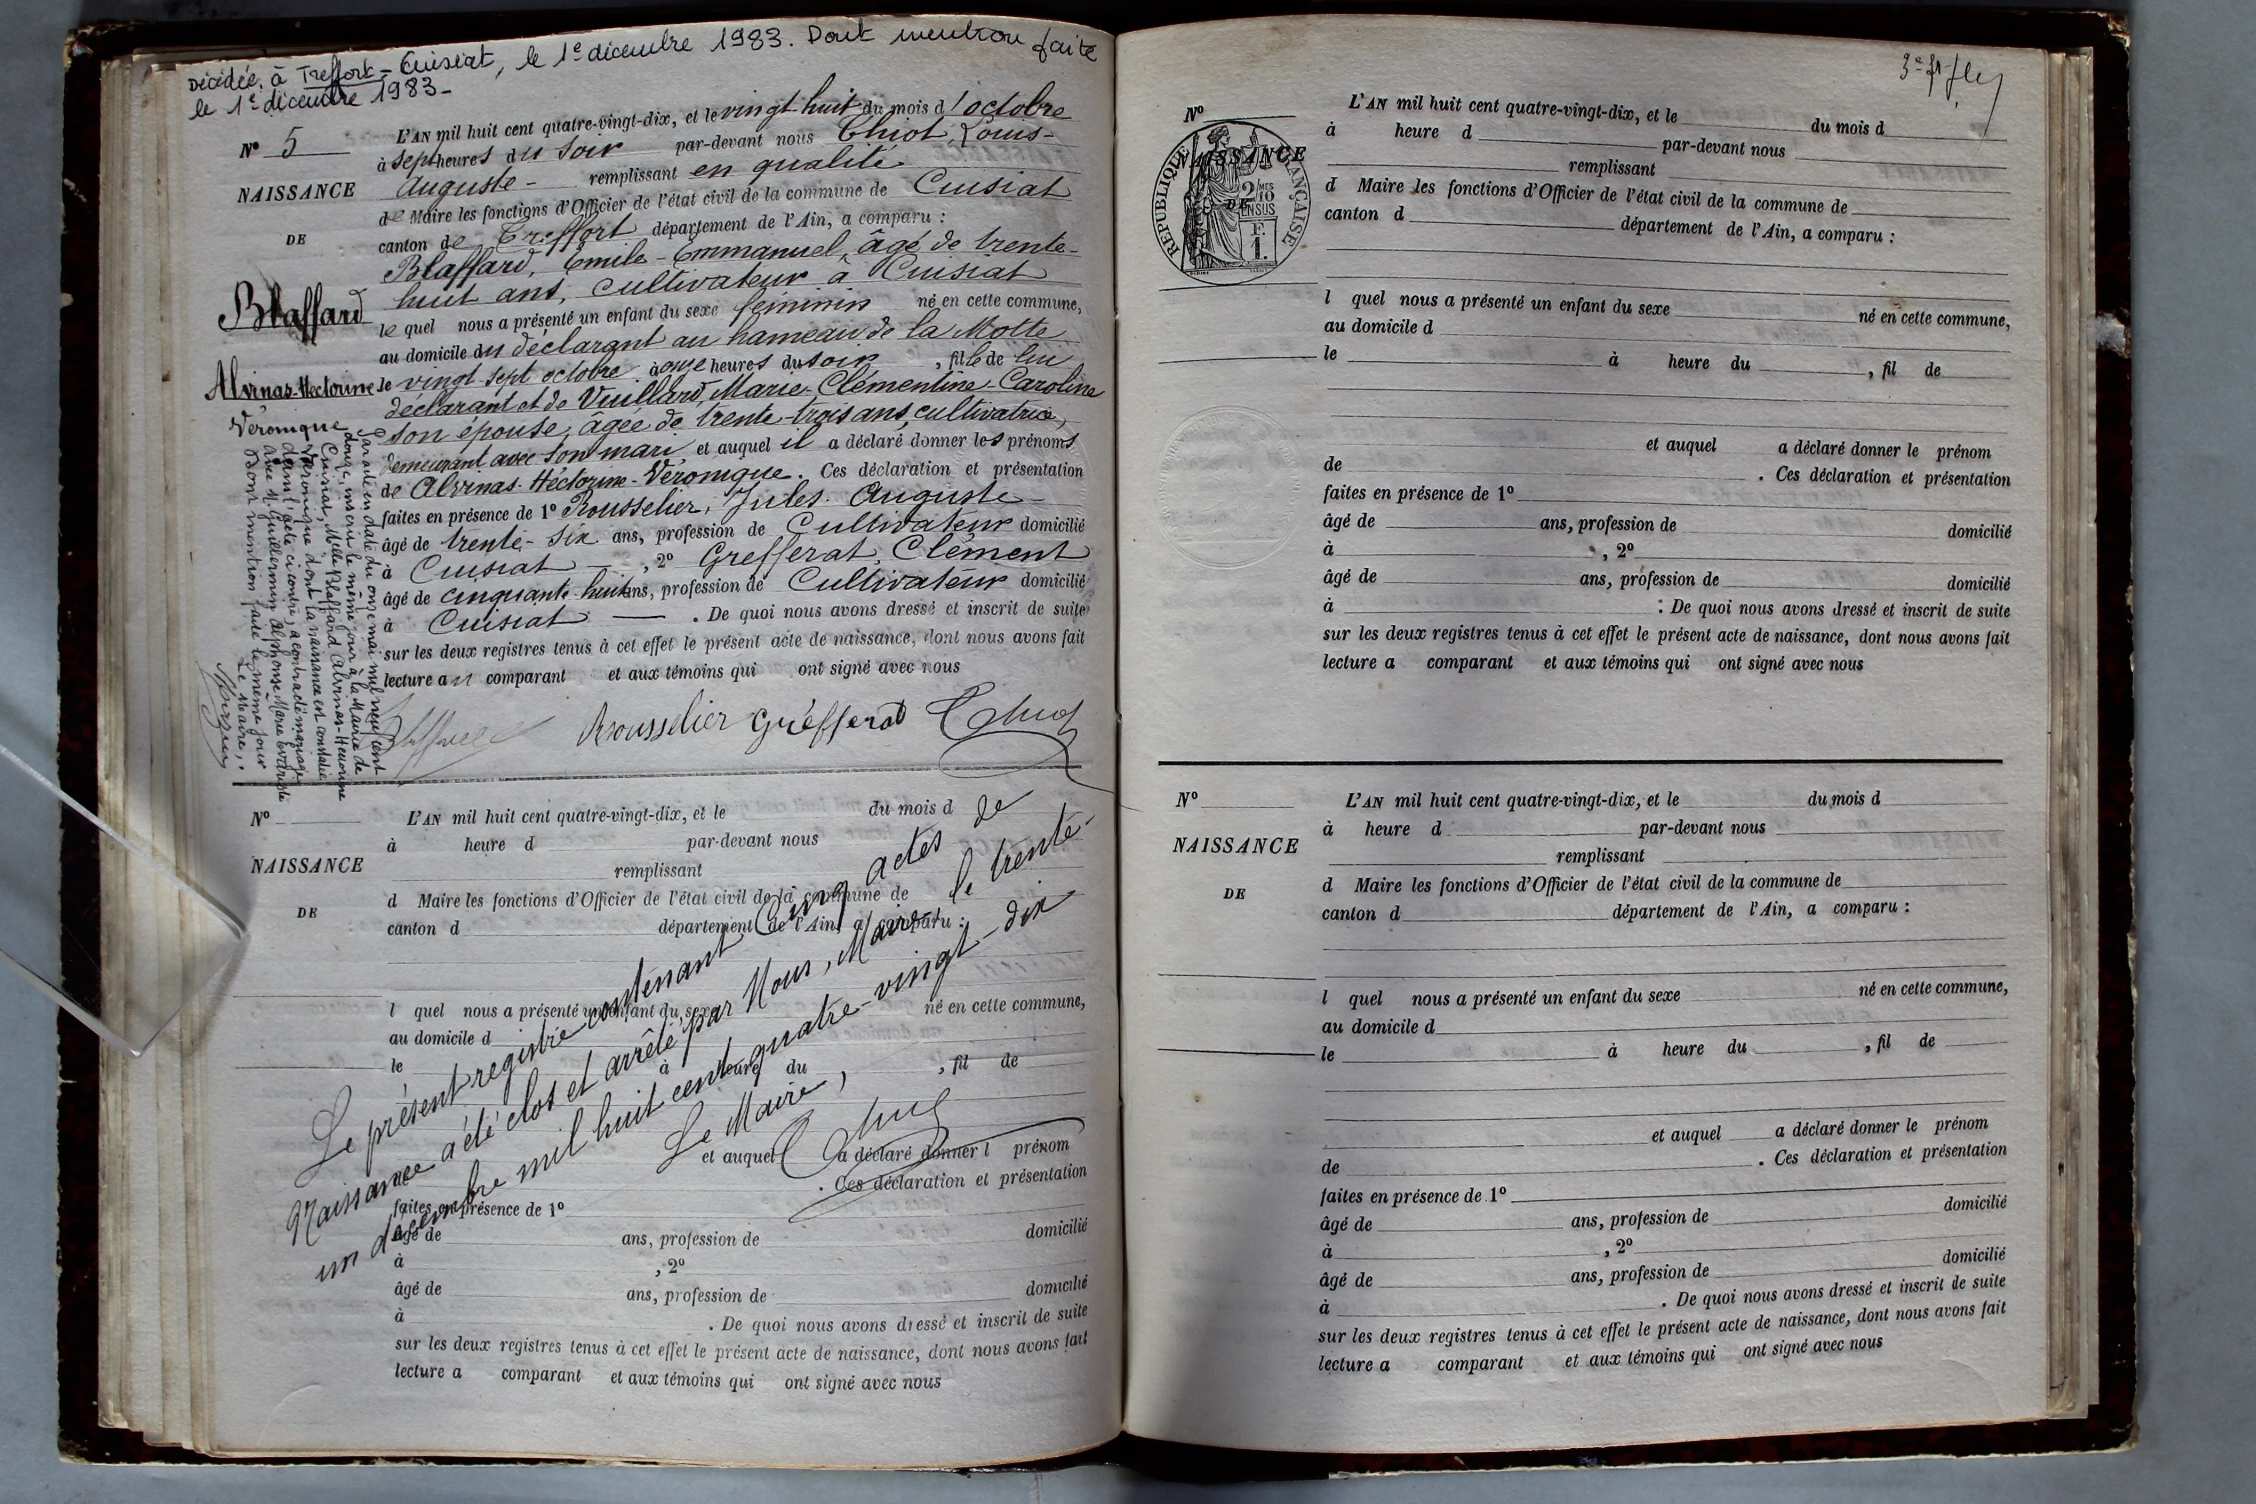 Décédée à Treffort-Cuisiat, le 1e décembre 1983. Dont mention faite
le 1e décembre 1983-
L'AN mil huit cent quatre-vingt-dix, et le vingt huit du mois d'octobre
N° 5
à sept heures du soir par-devant nous Chiot, Louis-
Auguste- remplissant en qualité
NAISSANCE
de Maire les fonctions d'Officier de l'état civil de la commune de Cuisiat
DE
canton de Treffort département de l'Ain, a comparu :
Blaffard, Émile-Emmanuel, âgé de trente-
huit ans, cultivateur à Cuisiat
Blaffard
lequel nous a présenté un enfant du sexe féminin né en cette commune,
au domicile du déclarant au hameau de la Motte
Alvinas-Hectorine
Véronique
le vingt sept octobre à onze heures du soir, fille de lui
déclarant et de Vuillard, Marie-Clémentine-Caroline
son épouse, âgée de trente-trois ans, cultivatrice,
demeurant avec son mari et auquel il a déclaré donner les prénoms
de Alvinas-Héctorine-Véronique. Ces déclaration et présentation
faites en présence de 1° Rousselier, Jules-Auguste-
âgé de trente-six ans, profession de Cultivateur domicilié
à Cuisiat, 2° Grefferat, Clément
âgé de cinquante-huit ans, profession de Cultivateur domicilié
à Cuisiat. De quoi nous avons dressé et inscrit de suite
sur les deux registres tenus à cet effet le présent acte de naissance, dont nous avons fait
lecture au comparant et aux témoins qui ont signé avec nous
Blaffard Rousselier Grefferat
Par acte en date du onze mai mil neuf cent
douze, inscrit le même jour à la Mairie de
Cuisiat, Melle Blaffard Alvinas-Hectorine
Véronique dont la naissance est constatée
dans l'acte ci contre, a contracté mariage
avec M. Guillermin Alphonse Marie
Dont mention faite le même jour
Le Maire,
N°
L'AN mil huit cent quatre-vingt-dix, et le du mois d
à heure d par-devant nous
NAISSANCE
remplissant
d Maire les fonctions d'Officier de l'état civil de la commune de
DE
canton d département de l'Ain, a comparu :
l quel nous a présenté un enfant du sexe né en cette commune,
au domicile d
le à heure du , fil de
et auquel a déclaré donner l prénom
. Ces déclaration et présentation
faites en présence de 1°
âgé de ans, profession de domicilié
à , 2°
âgé de ans, profession de domicilié
à . De quoi nous avons dressé et inscrit de suite
sur les deux registres tenus à cet effet le présent acte de naissance, dont nous avons fait
lecture a comparant et aux témoins qui ont signé avec nous
Le présent registre contenant cinq actes de
Naissance a été clos et arrêté par Nous, Maire, le trente-
un décembre mil huit cent quatre-vingt-dix
Le Maire,
N°
L'AN mil huit cent quatre-vingt-dix, et le du mois d
à heure d par-devant nous
NAISSANCE
remplissant
RÉPUBLIQUE FRANÇAISE
2/10 MES
EN SUS
F.
1.
d Maire les fonctions d'Officier de l'état civil de la commune de
DE
canton d département de l'Ain, a comparu :
l quel nous a présenté un enfant du sexe né en cette commune,
au domicile d
le à heure du , fil de
et auquel a déclaré donner le prénom
de . Ces déclaration et présentation
faites en présence de 1°
âgé de ans, profession de domicilié
à , 2°
âgé de ans, profession de domicilié
à . De quoi nous avons dressé et inscrit de suite
sur les deux registres tenus à cet effet le présent acte de naissance, dont nous avons fait
lecture a comparant et aux témoins qui ont signé avec nous
N°
L'AN mil huit cent quatre-vingt-dix, et le du mois d
à heure d par-devant nous
NAISSANCE
remplissant
d Maire les fonctions d'Officier de l'état civil de la commune de
DE
canton d département de l'Ain, a comparu :
l quel nous a présenté un enfant du sexe né en cette commune,
au domicile d
le à heure du , fil de
et auquel a déclaré donner le prénom
de . Ces déclaration et présentation
faites en présence de 1°
âgé de ans, profession de domicilié
à , 2°
âgé de ans, profession de domicilié
à . De quoi nous avons dressé et inscrit de suite
sur les deux registres tenus à cet effet le présent acte de naissance, dont nous avons fait
lecture a comparant et aux témoins qui ont signé avec nous